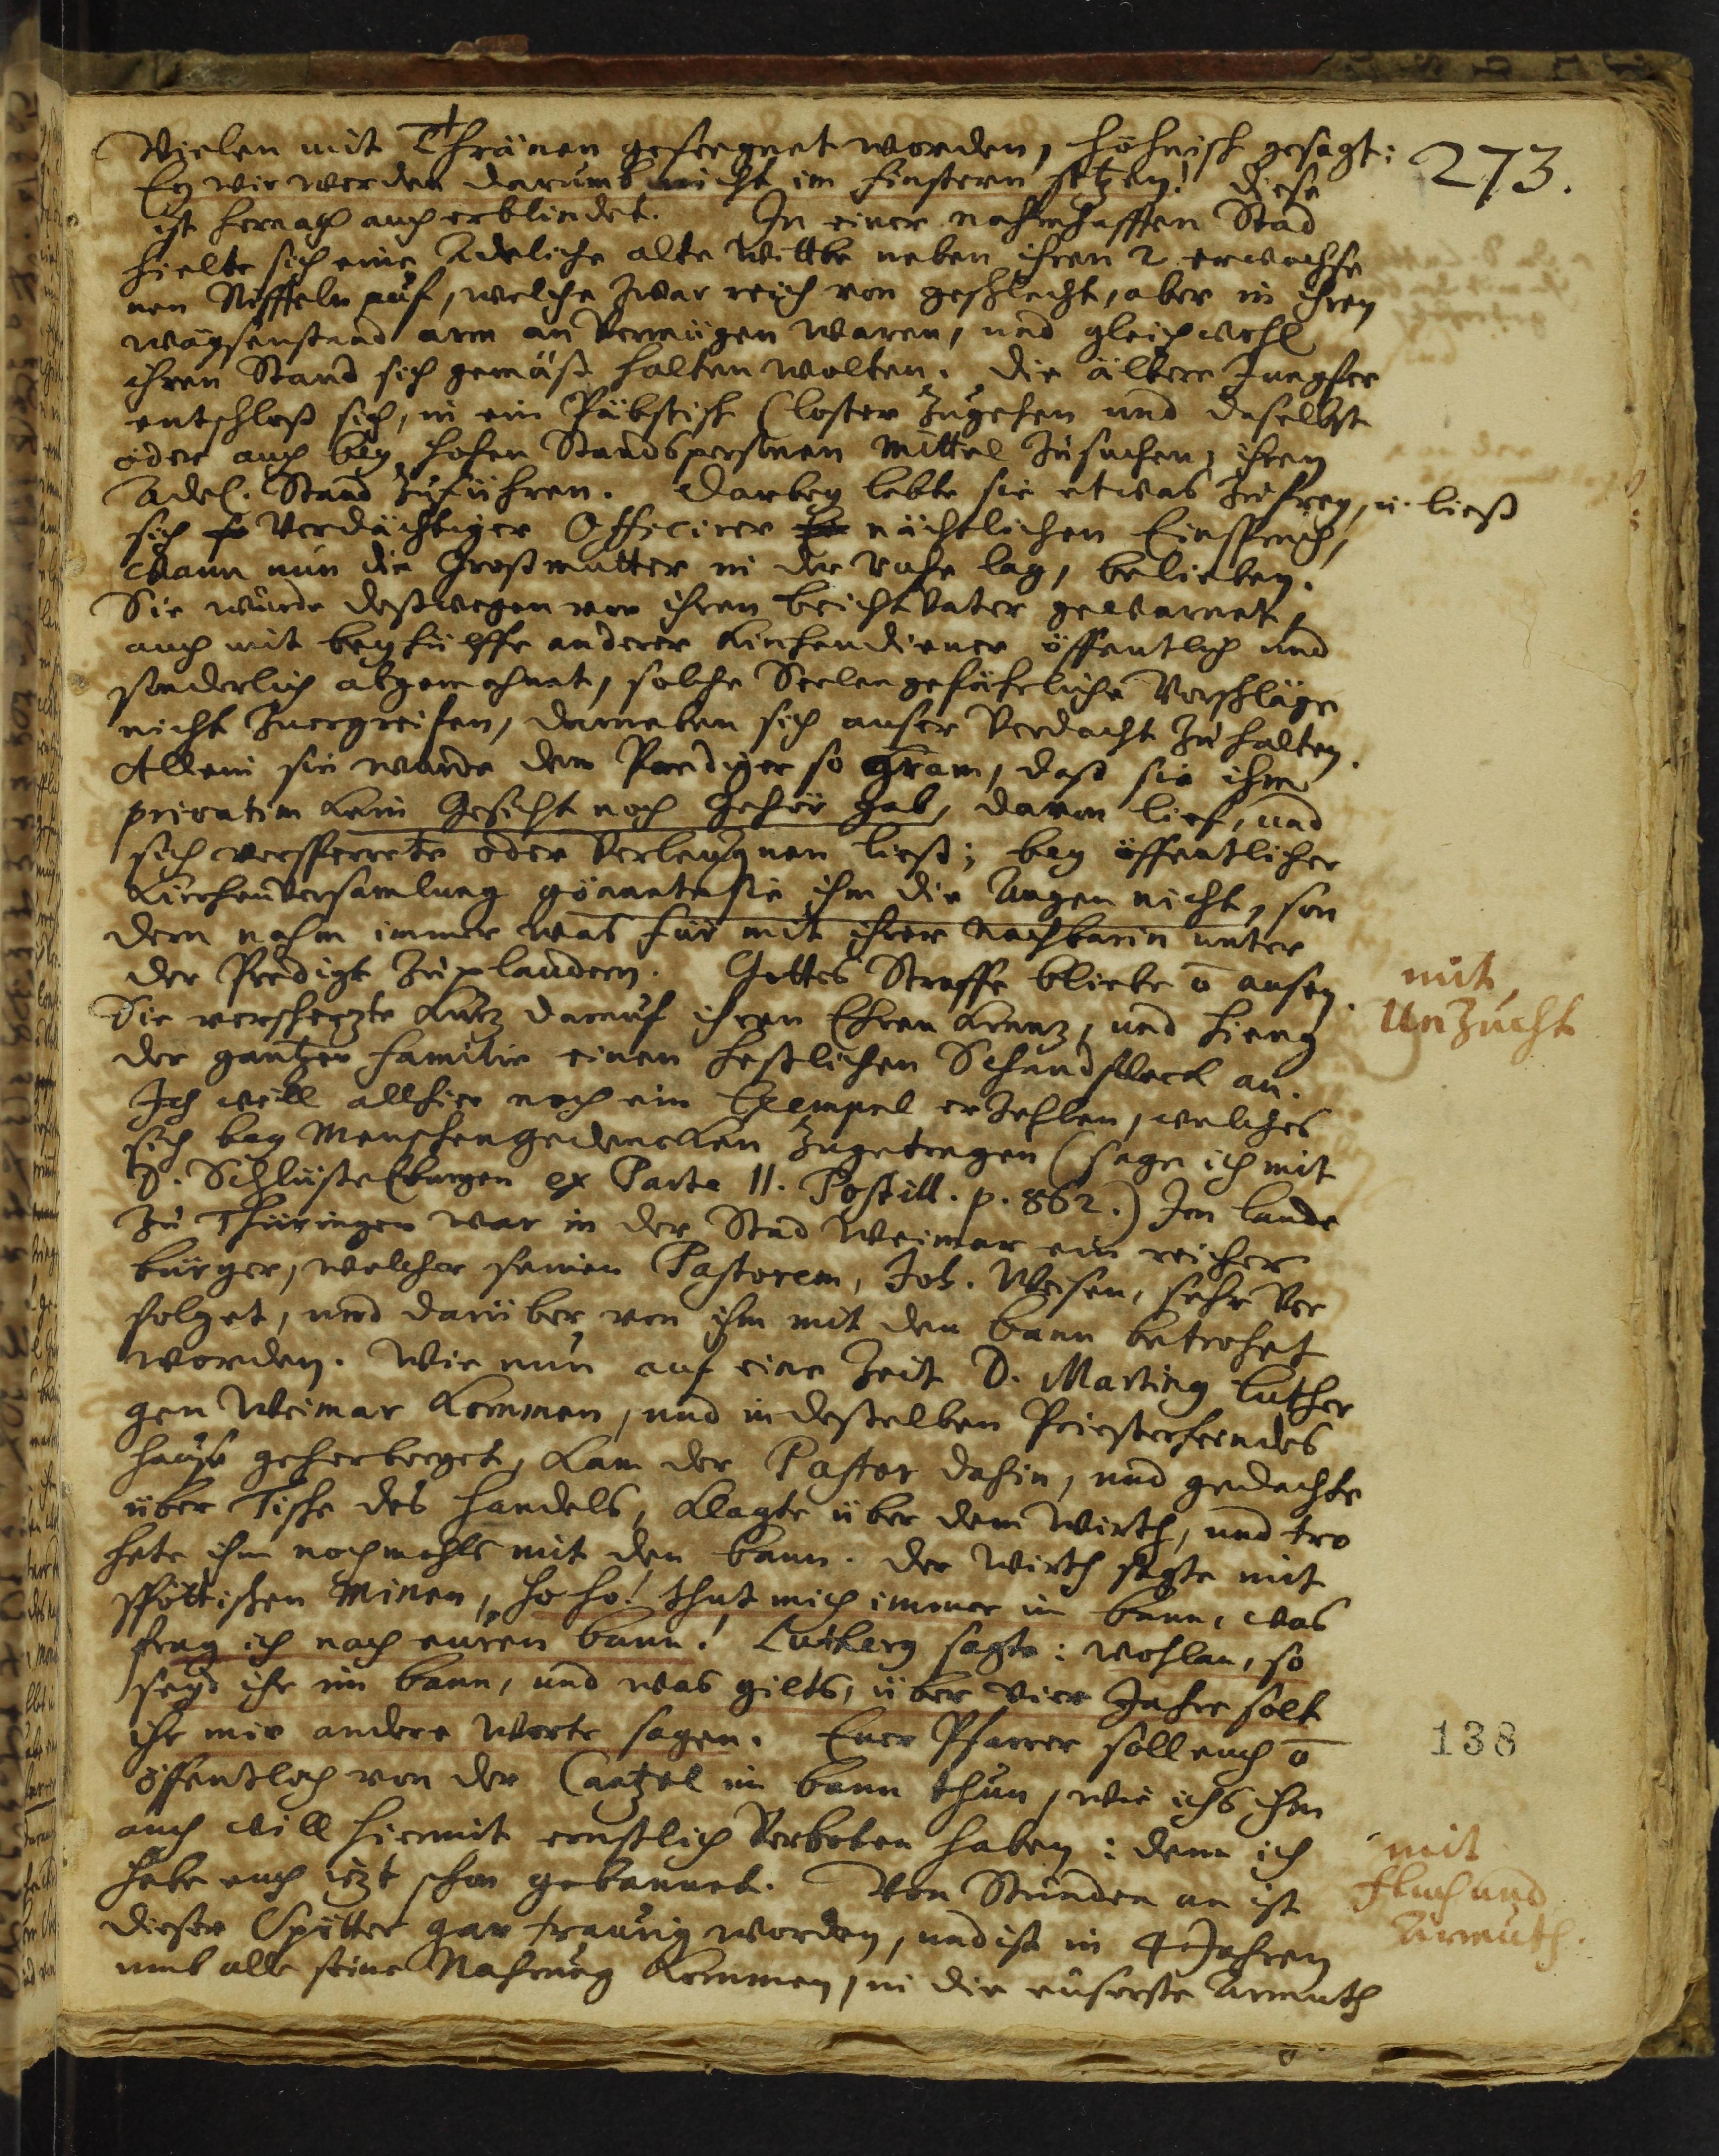 273.
Vielen mit Thränen gesegnet worden, höhnisch gesagt:
Ey wir werden darumb nicht im finstern sitzen! diese
ist hernach auch erblindet. In einer nahmhafften Stad
hielte sich eine Adeliche alte Wittbe neben ihren 2 erwachse
nen Nifteln auf, welche zwar reich von geschlecht, aber in ihren
waysenstand arm an Vermügen waren, und gleichwohl
ihren Stand sich gemäß halten wolten. Die ältere Jungfer
entschloß sich, in ein Päbstisch Closter zugehen und daselbst
oder auch bey hohen Standspersonen Mittel zusuchen, ihren
Adel. Stand zuführen. Darbey lebte sie etwas zu frey, u. ließ
sich verdächtiger Officirer nächtlichen Einspruch,
Wann nun die Großmutter in der ruhe lag, belieben.
Sie wurde deßwegen von ihren beichtvater gewarnet,
auch mit beyhülffe anderer Kirchendiener öffentlich und
sonderlich abgemahnet, solche Seelengefährliche Vorschläge
nicht zuergreifen, darneben sich auser Verdacht zu halten.
Allein sie wurde dem Prediger so gram, daß sie ihm
privatim kein Gesicht noch Gehör gab, davon lief, und
sich versperrete oder Verleugnen ließ; bey öffentlicher
Kirchenversamlung gönnete sie ihm die Augen nicht, son
dern nahm immer was für mit ihrer Nachbarin unter
der Predigt zu plaudern. Gottes Straffe bliebe ō ausen.
Sie verschertzte kurtz darauf ihren Ehren Krantz, und hieng
der gantzen familie einen heslichen Schandfleck an.
mit
Unzucht
Ich will allhier noch ein Exempel erzehlen, welches
sich bey Menschengedencken zugetragen (sage ich mit
D. Schlüsselburgen ex Parte II. Postill. p. 862.) Im lande
zu Thüringen war in der Stad Weimar ein reicher
bürger, welcher seinen Pastorem, Joh. Weisen, sehr Ver
folget, und darüber von ihm mit den bann betrohet
worden. Wie nun auf eine Zeit D. Martin Luther
gen Weimar kommen, und in desselben Priesterfeindes
hause geherberget, kam der Pastor dahin, und gedachte
über Tische des handels, klagte über dem Wirth, und tro
hete ihm nochmahls mit den bann. Der Wirth sagte mit
spöttischen Minen, ho ho! thut mich immer in bann, was
frag ich nach euren bann! Lutherus sagte: wohlan, so
seyd ihr im bann, und was gilts, über vier Jahre solt
ihr mir andere Worte sagen. Euer Pfarrer soll euch ō
öffentlich von der Cantzel in bann thun, wie ichs ihm
auch will hiermit ernstlich Verboten haben: denn ich
habe euch itzt schon gebannet. Von Stunden an ist
dieser Spötter gar traurig worden, und ist in 4 Jahren
umb alle seine Nahrung kommen, in die euserste Armuth
138
mit
Fluch und
Armuth.